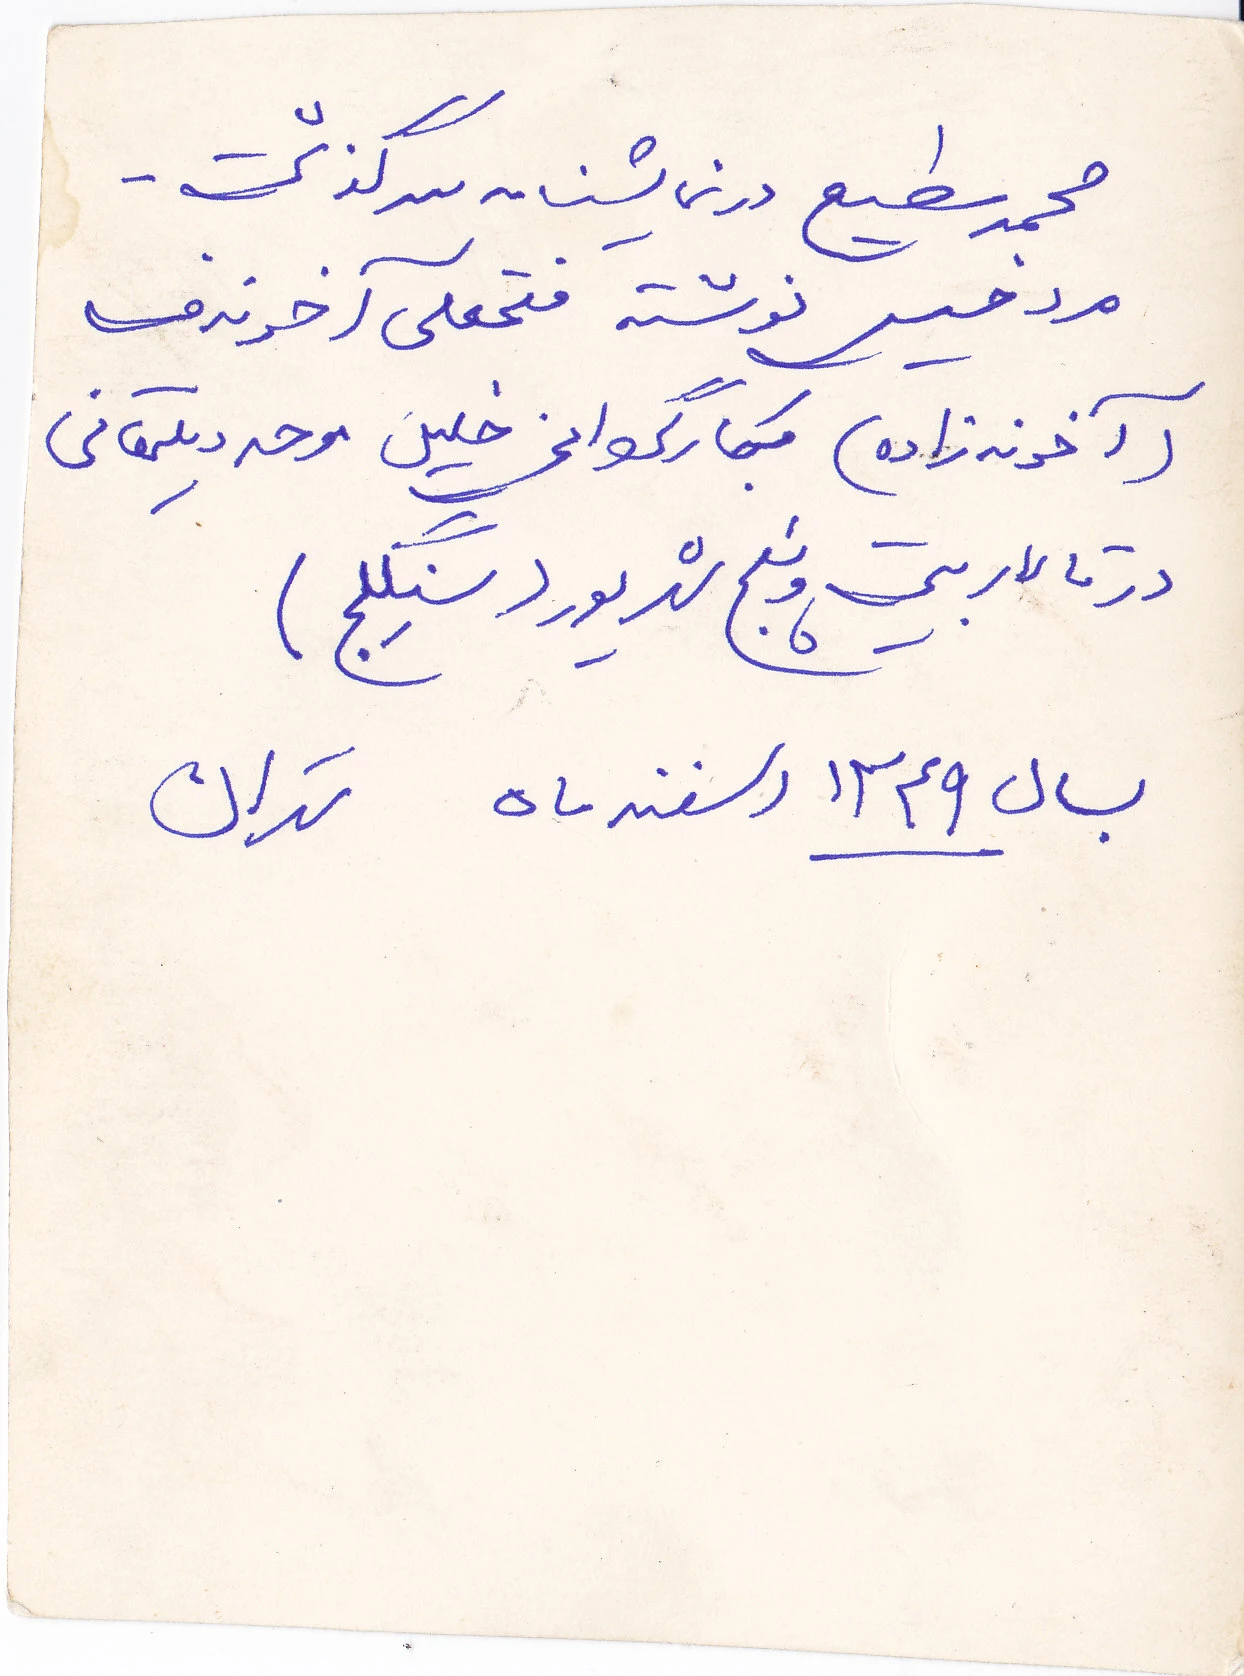 محمد مطیع در نمایشنامه سرگذشت -
مرد خسیس نوشته فتحعلی آخوندف
(آخوندزاده) بکارگردانی خلیل موحد دیلمقانی
در تالار بیست و پنج شهریور (سنگلج)
بسال ۱۳۴۹ اسفند ماه تهران